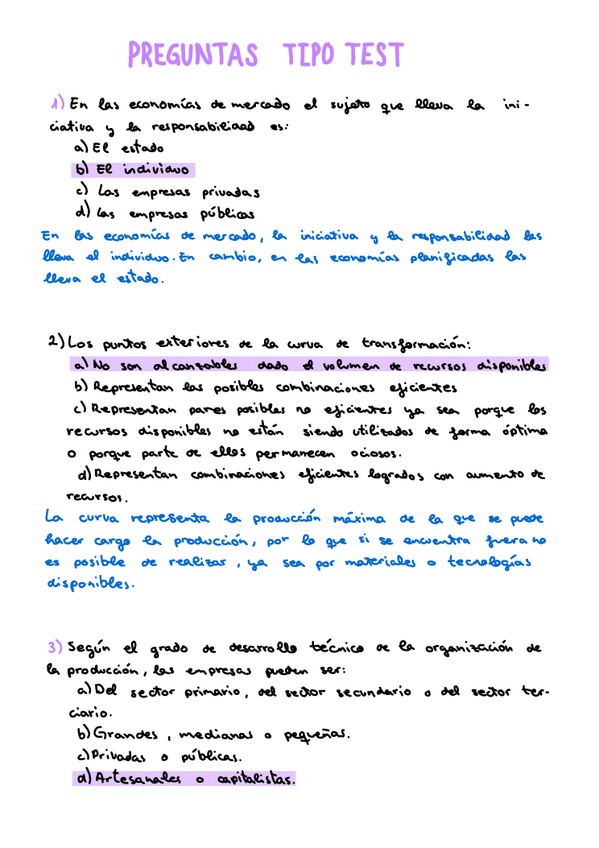 PREGUNTAS TIPO TEST
1) En las economías de mercado el sujeto que lleva la ini-
ciativa y la responsabilidad es:
a) El estado
b) El individuo
c) Las empresas privadas
d) las empresas públicas
En las economías de mercado, la iniciativa y la responsabilidad las
lleva el individuo. En cambio, en las economías planificadas las
lleva el estado.
2) Los puntos exteriores de la curva de transformación:
a) No son alcanzables dado el volumen de recursos disponibles
b) Representan las posibles combinaciones eficientes
c) Representan pares posibles no eficientes ya sea porque los
recursos disponibles no están siendo utilizados de forma óptima
o porque parte de ellos permanecen ociosos.
d) Representan combinaciones eficientes logrados con aumento de
recursos.
La curva representa la producción máxima de la que se puede
hacer cargo la producción, por lo que si se encuentra fuera no
es posible de realizar, ya sea por materiales o tecnologías
disponibles.
3) Según el grado de desarrollo técnico de la organización de
la producción, las empresas pueden ser:
a) Del sector primario, del sector secundario o del sector ter-
ciario.
b) Grandes, medianas o pequeñas.
c) Privadas o públicas.
d) Artesanales o capitalistas.